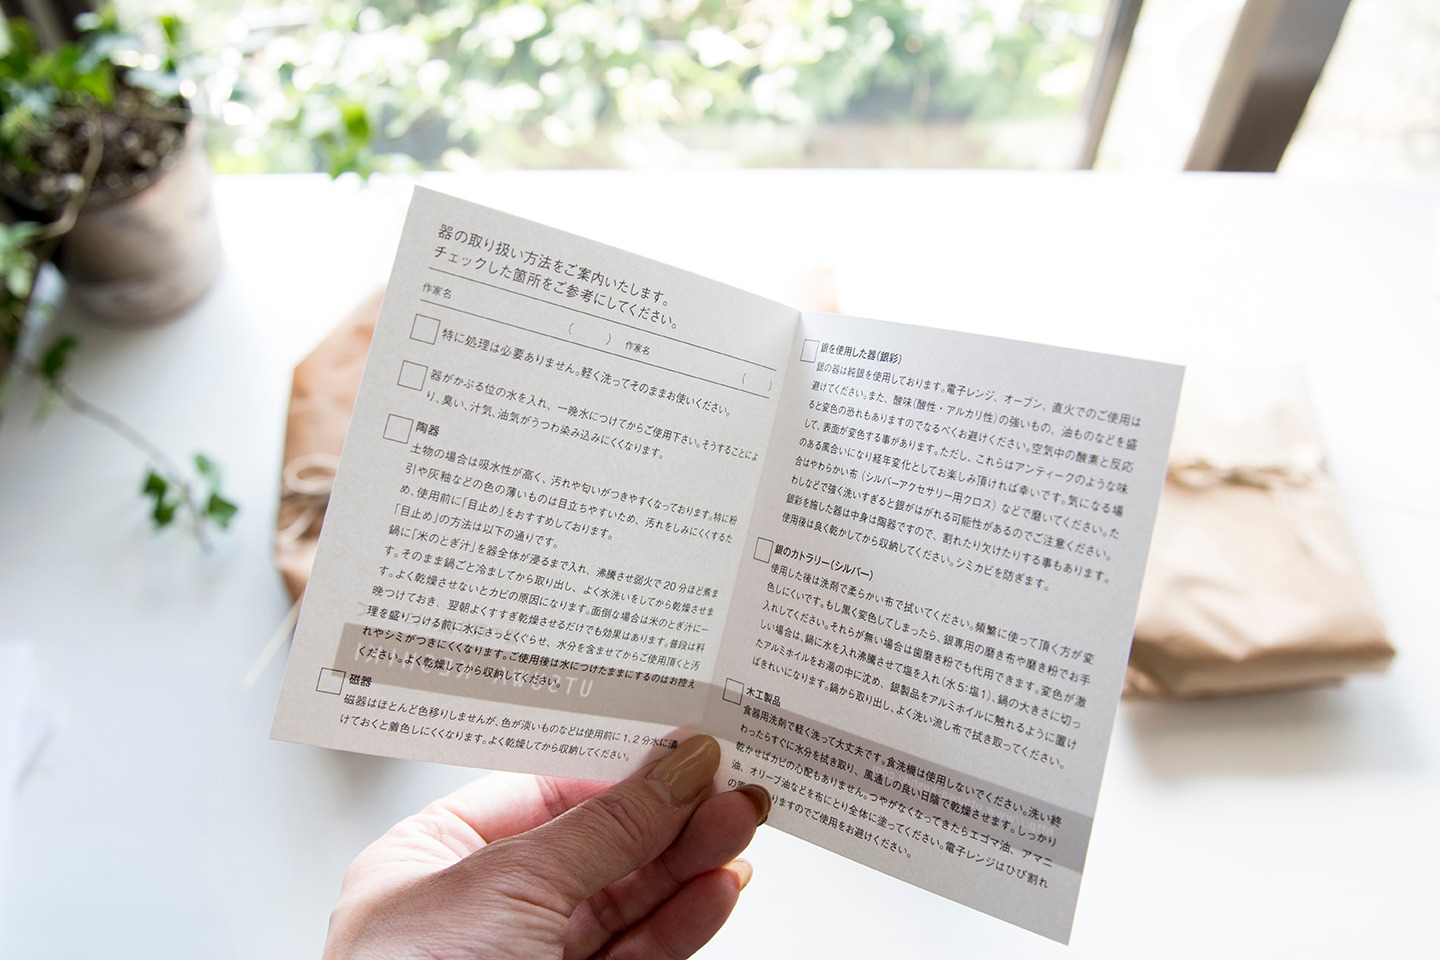 器の取り扱い方法をご案内いたします。
チェックした箇所をご参考にしてください。
作家名 ( ) 作家名 ( )
特に処理は必要ありません。軽く洗ってそのままお使いください。
器がかぶる位の水を入れ、一晩水につけてからご使用下さい。そうすることによ
り、臭い、汁気、油気がうつわ染み込みにくくなります。
陶器
土物の場合は吸水性が高く、汚れや匂いがつきやすくなっております。特に粉
引や灰釉などの色の薄いものは目立ちやすいため、汚れをしみにくくするた
め、使用前に「目止め」をおすすめしております。
「目止め」の方法は以下の通りです。
鍋に「米のとぎ汁」を器全体が浸るまで入れ、沸騰させ弱火で20分ほど煮ま
す。そのまま鍋ごと冷ましてから取り出し、よく水洗いをしてから乾燥させま
す。よく乾燥させないとカビの原因になります。面倒な場合は米のとぎ汁に一
晩つけておき、翌朝よくすすぎ乾燥させるだけでも効果はあります。普段は料
理を盛りつける前に水にさっとくぐらせ、水分を含ませてからご使用頂くと汚
れやシミがつきにくくなります。ご使用後は水につけたままにするのはお控え
ください。よく乾燥してから収納してください。
磁器
磁器はほとんど色移りしませんが、色が淡いものなどは使用前に1、2分水に漬
けておくと着色しにくくなります。よく乾燥してから収納してください。
銀を使用した器(銀彩)
銀の器は純銀を使用しております。電子レンジ、オーブン、直火でのご使用は
避けてください。また、酸味(酸性・アルカリ性)の強いもの、油ものなどを盛
ると変色の恐れもありますのでなるべくお避けください。空気中の酸素と反応
して、表面が変色する事があります。ただし、これらはアンティークのような味
のある風合いになり経年変化としてお楽しみ頂ければ幸いです。気になる場
合はやわらかい布(シルバーアクセサリー用クロス)などで磨いてください。た
わしなどで強く洗いすぎると銀がはがれる可能性があるのでご注意ください。
銀彩を施した器は中身は陶器ですので、割れたり欠けたりする事もあります。
使用後は良く乾かしてから収納してください。シミカビを防ぎます。
銀のカトラリー(シルバー)
使用した後は洗剤で柔らかい布で拭いてください。頻繁に使って頂く方が変
色しにくいです。もし黒く変色してしまったら、銀専用の磨き布や磨き粉でお手
入れしてください。それらが無い場合は歯磨き粉でも代用できます。変色が激
しい場合は、鍋に水を入れ沸騰させて塩を入れ(水5:塩1)、鍋の大きさに切っ
たアルミホイルをお湯の中に沈め、銀製品をアルミホイルに触れるように置け
ばきれいになります。鍋から取り出し、よく洗い流し布で拭き取ってください。
木工製品
食器用洗剤で軽く洗って大丈夫です。食洗機は使用しないでください。洗い終
わったらすぐに水分を拭き取り、風通しの良い日陰で乾燥させます。しっかり
乾かせばカビの心配もありません。つやがなくなってきたらエゴマ油、アマニ
油、オリーブ油などを布にとり全体に塗ってください。電子レンジはひび割れ
の りますのでご使用をお避けください。